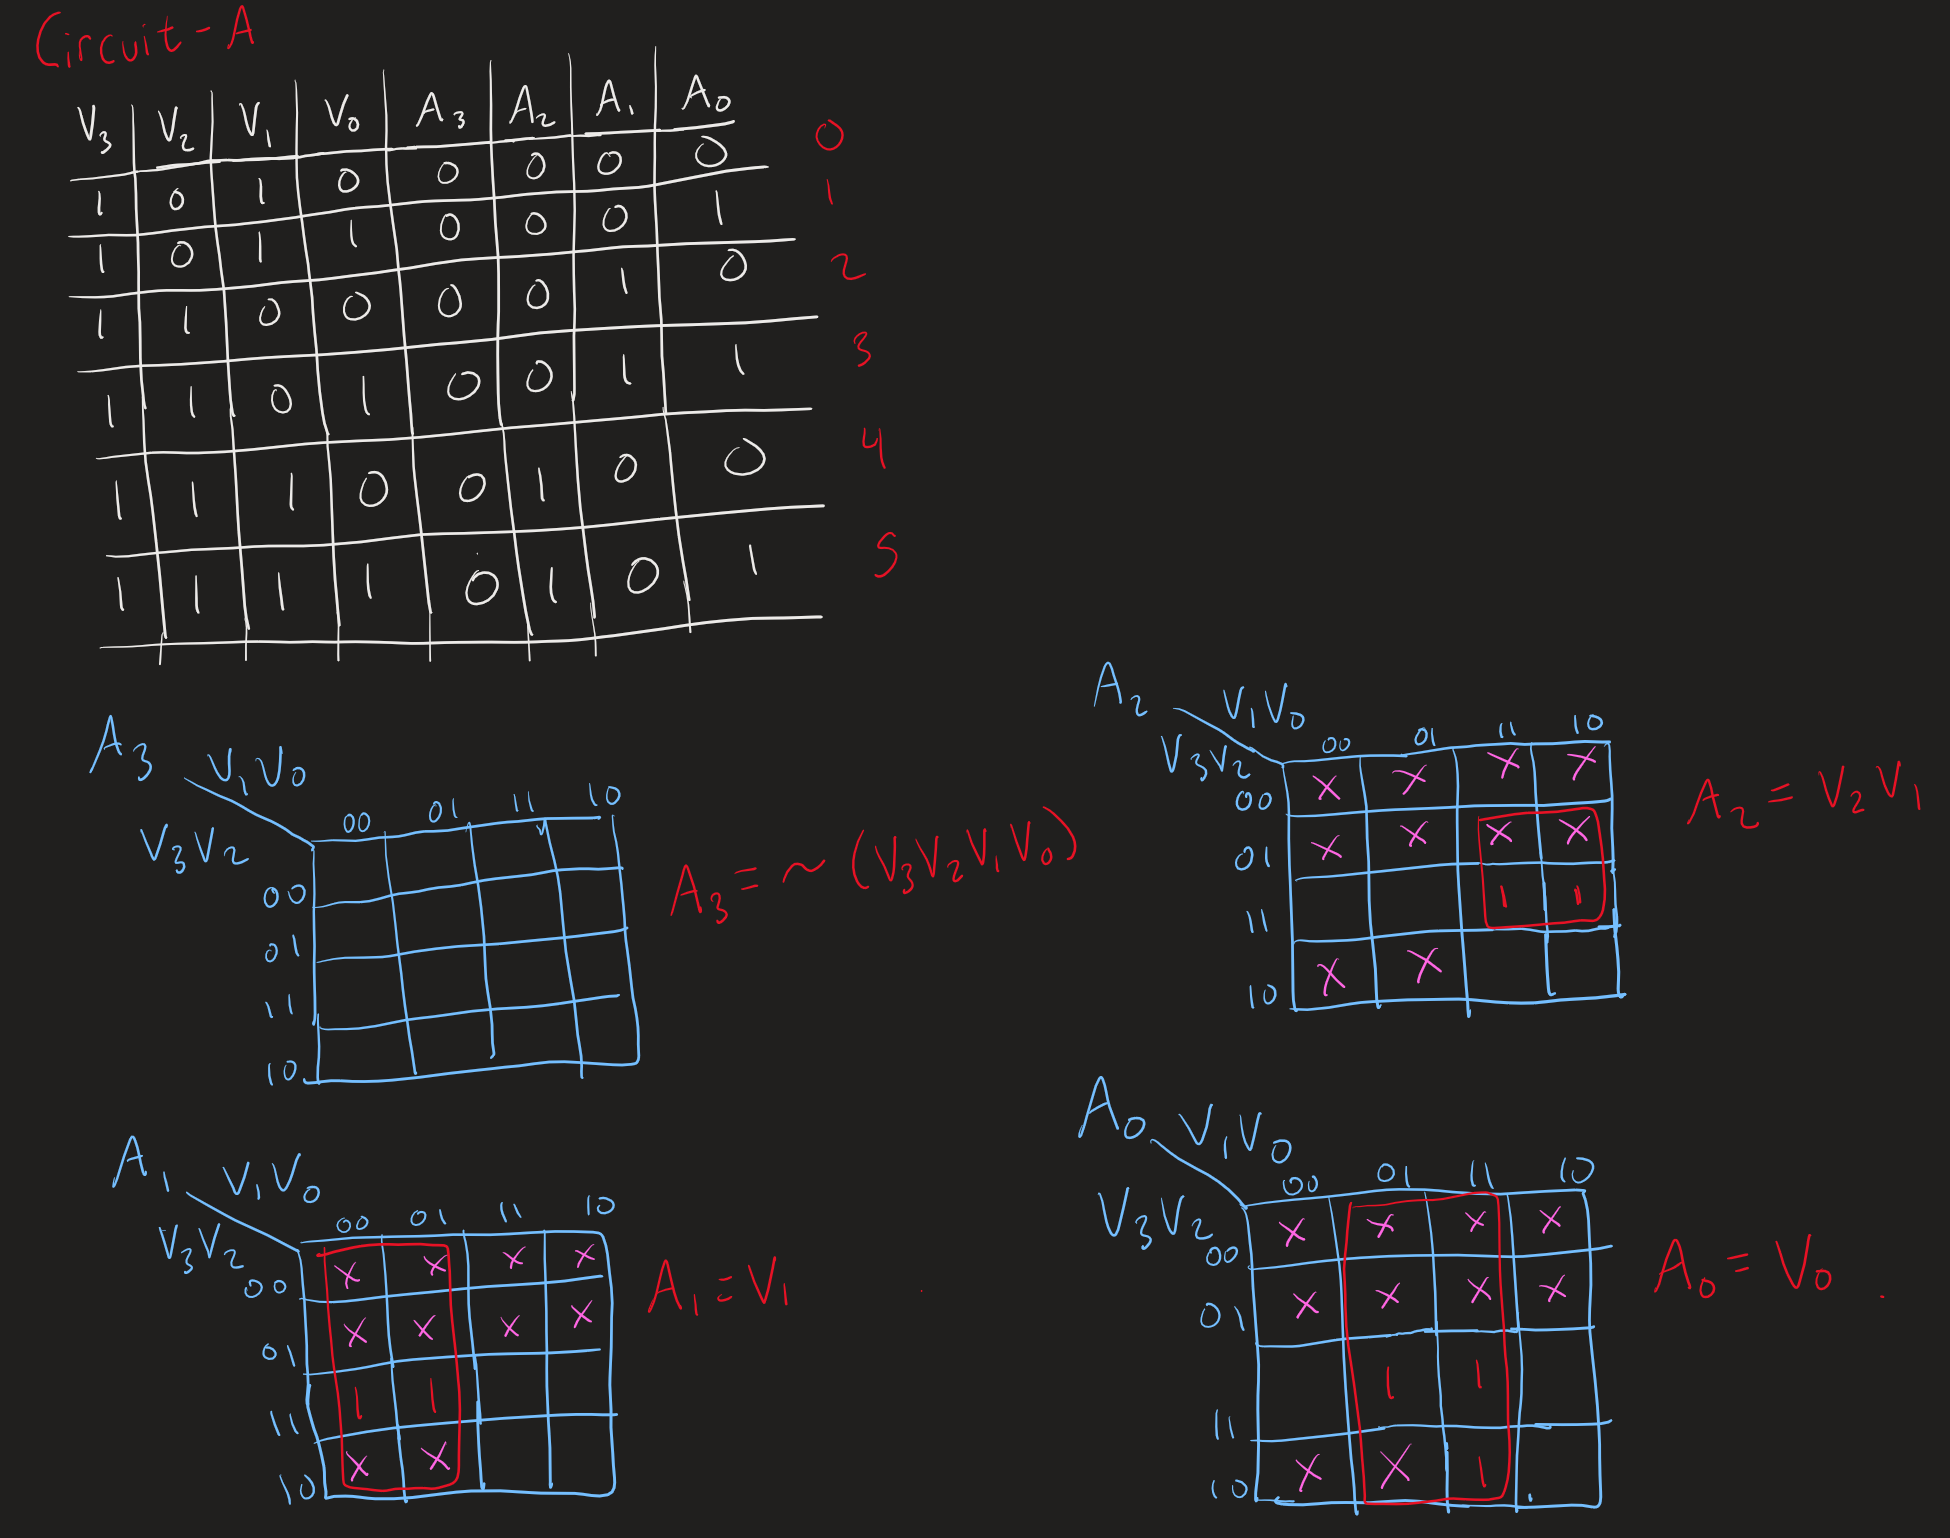 Circuit - A
V3 V2 V1 V0 A3 A2 A1 A0
1 0 1 0 0 0 0 0 0
1 0 1 1 0 0 0 1 1
1 1 0 0 0 0 1 0 2
1 1 0 1 0 0 1 1 3
1 1 1 0 0 1 0 0 4
1 1 1 1 0 1 0 1 5
A3 V1V0
V3V2 00 01 11 10
00
01
11
10
A3 = ~ (V3V2V1V0)
A2 V1V0
V3V2 00 01 11 10
00 X X X X
01 X X X X
11 1 1
10 X X
A2 = V2V1
A1 V1V0
V3V2 00 01 11 10
00 X X X X
01 X X X X
11 1 1
10 X X
A1 = V1
A0 V1V0
V3V2 00 01 11 10
00 X X X X
01 X X X X
11 1 1
10 X X 1
A0 = V0